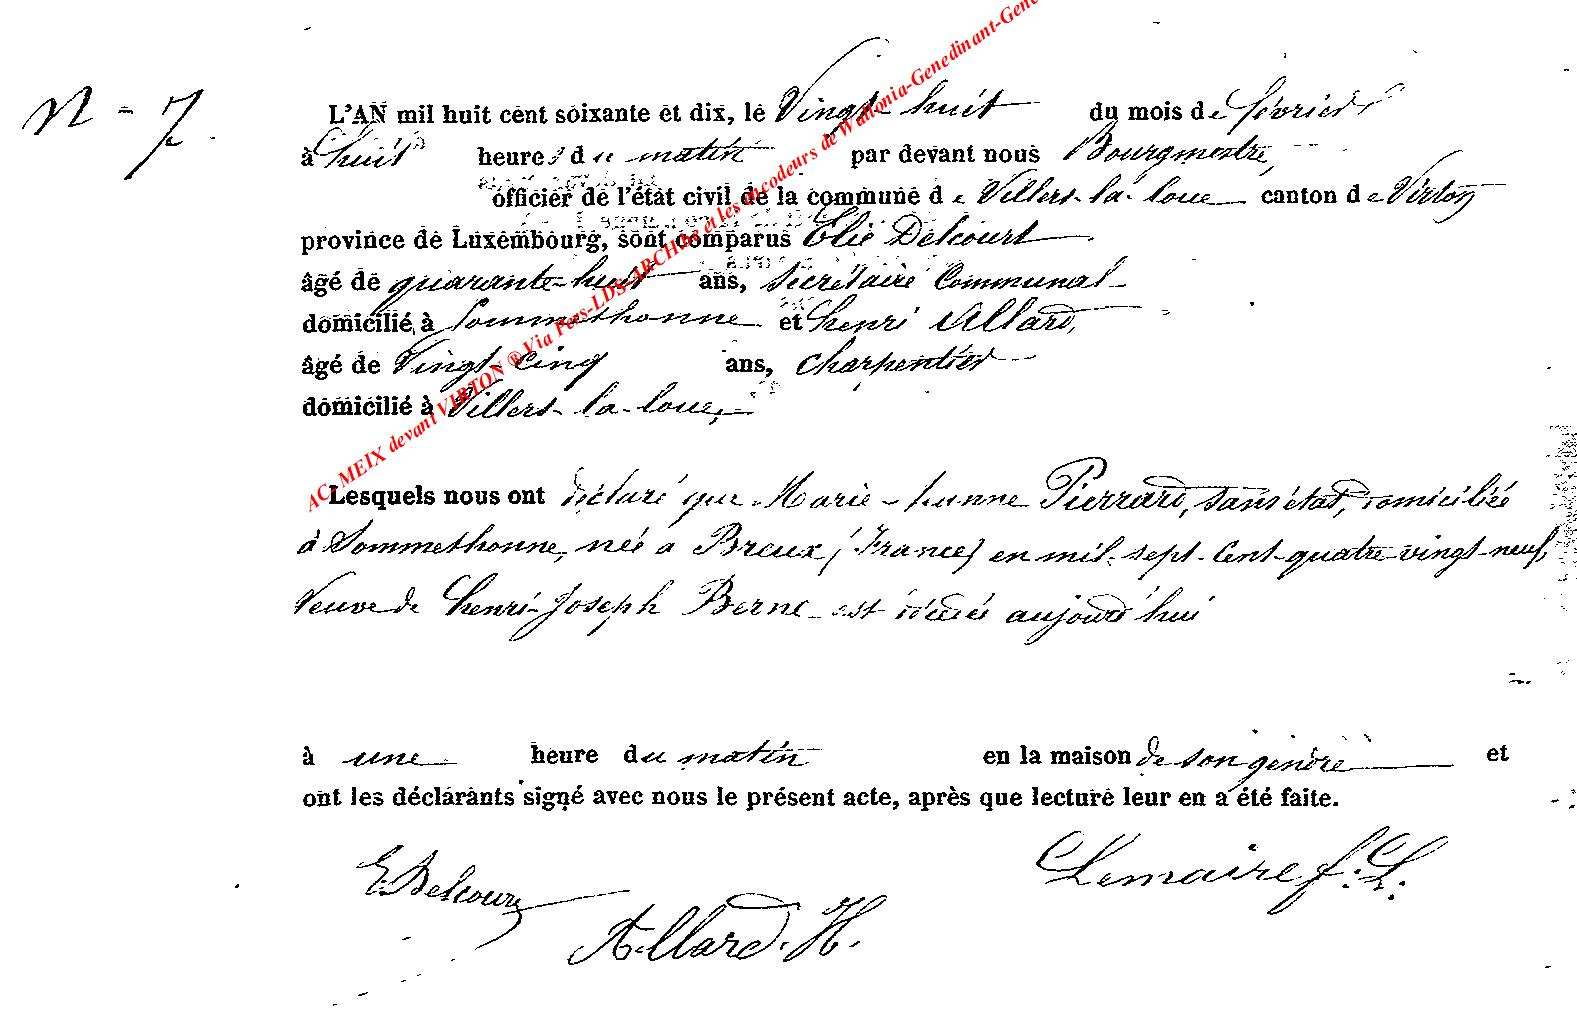 N - 7.
L'AN mil huit cent soixante et dix, le Vingt-huit du mois de février
à huit heures du matin par devant nous Bourgmestre,
officier de l'état civil de la commune de Villers-la-loue canton de Virton
province de Luxembourg, sont comparus Elie Delcourt
âgé de quarante-huit ans, secrétaire Communal
domicilié à Sommethonne et henri Allard,
âgé de Vingt-cinq ans, charpentier
domicilié à Villers-la-loue,
Lesquels nous ont déclaré que Marie-Jeanne Pierrard, sans état, domiciliée
à Sommethonne, née à Breux (France) en mil-sept-cent-quatre-vingt-neuf,
Veuve de henri-Joseph Berne est décédée aujourd'hui
à une heure du matin en la maison de son gendre et
ont les déclarants signé avec nous le présent acte, après que lecture leur en a été faite.
E. Delcourt
Allard. H.
Lemaire f. L.
AC. MEIX devant VIRTON ® Via Pers-LDS-ARCHus et les encodeurs de Wallonia-Genedinant-Gene